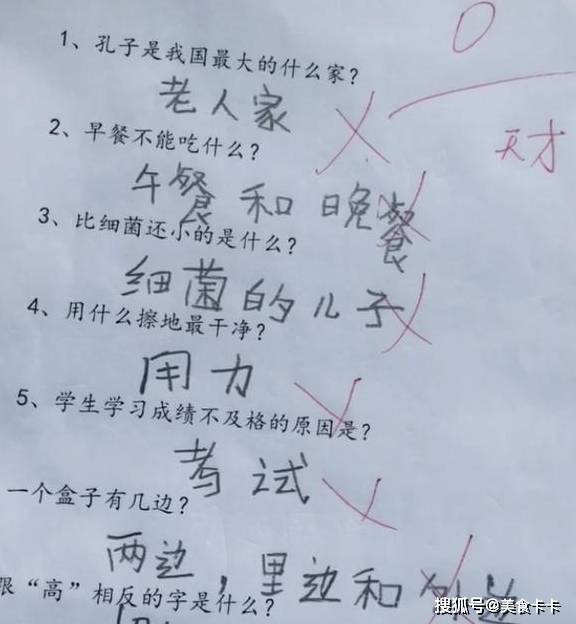 0
1、孔子是我国最大的什么家?
老人家
天才
2、早餐不能吃什么?
午餐和晚餐
3、比细菌还小的是什么?
细菌的儿子
4、用什么擦地最干净?
用力
5、学生学习成绩不及格的原因是?
考试
一个盒子有几边?
两边,里边和外边
跟“高”相反的字是什么?
搜狐号@美食卡卡